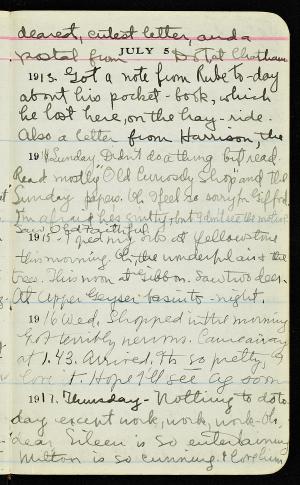 dearest, cutest letter, and a
postal from Dot at Chatham
JULY 5
1913. Got a note from Rube to-day
about his pocket-book, which
he lost here, on the hay-ride.
Also a letter from Harrison, the
1914 Sunday. Didn't do a thing but read.
Read mostly "Old Curiosity Shop" and the
Sunday papers. Oh, I feel so sorry for Gifford.
I'm afraid he's guilty, but I don't see the motive.
Saw Old Faithful
1915. opened my eyes at Yellowstone
this morning. Oh, the wonderful air & the
trees. This noon at Gibbon. Saw two deer.
At Upper Geyser basin to-night.
1916 Wed, Shopped in the morning
Got terribly nervous. Came away
at 1.43. Arrived. Its so pretty, I
love it. Hope I'll see Ag soon
1917. Thursday - Nothing to do to-
day except work, work, work - Oh,
dear Eileen is so entertaining
Milton is so cunning &